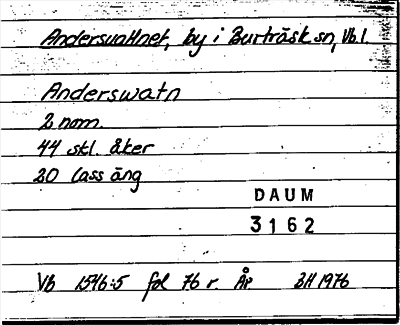 Andersvattnet, by i Burträsk sn, Vb. l.
Anderswatn
2 nom.
44 skl. åker
20 lass äng
DAUM
3162
Vb 1546:5 fol 76 r. ÅP BH 1976